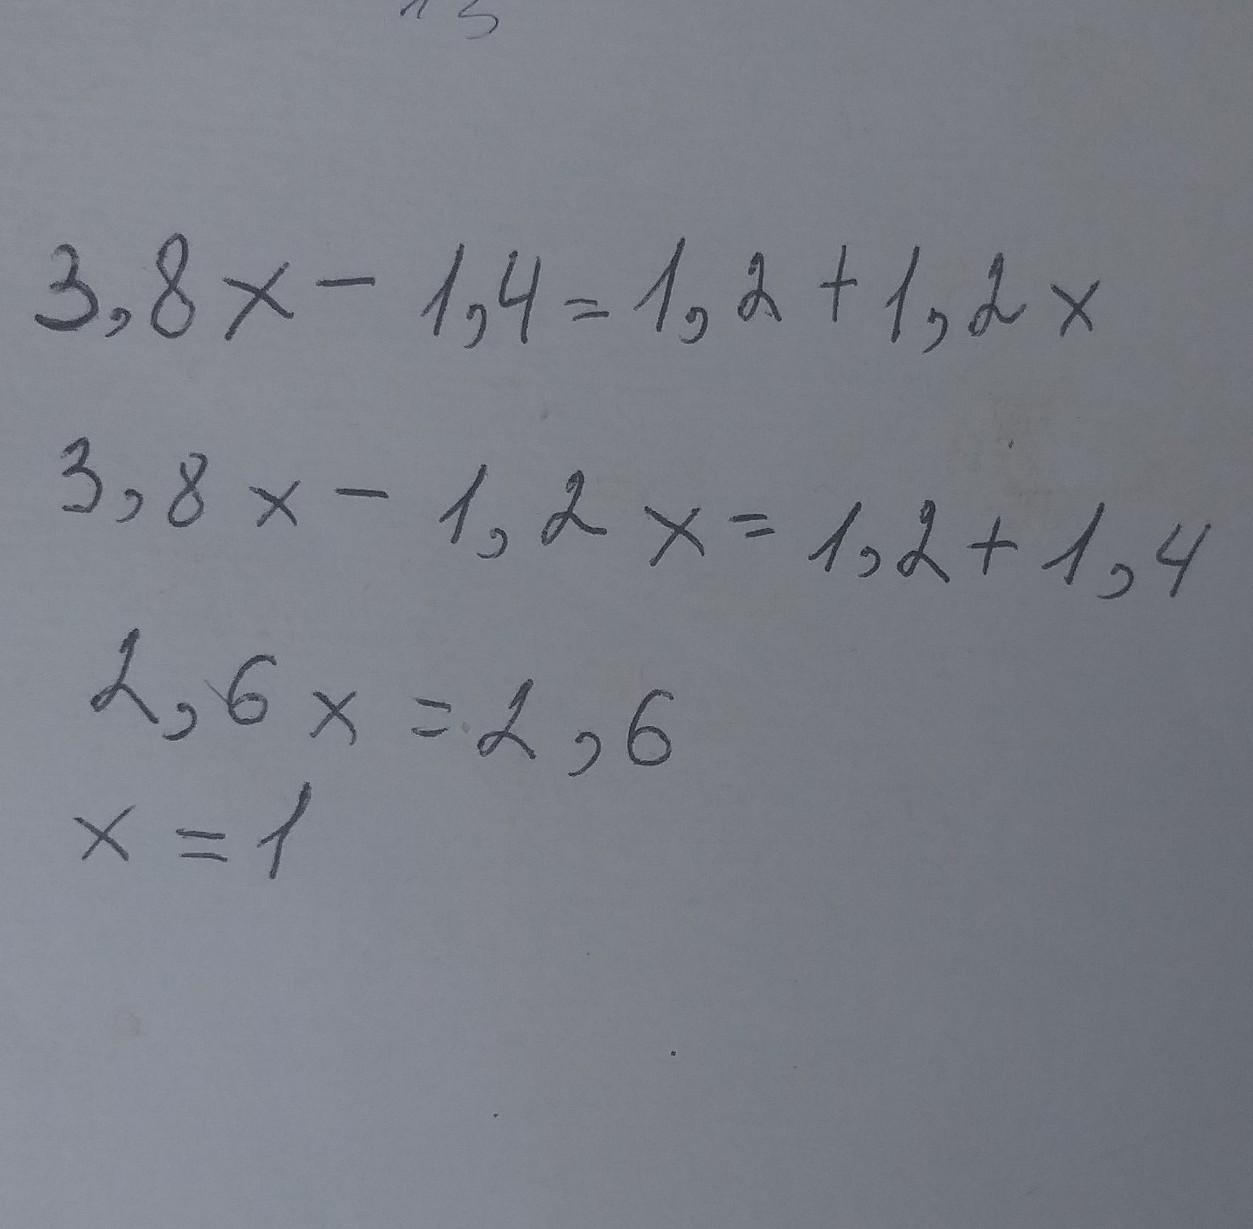 3,8x - 1,4 = 1,2 + 1,2x
3,8x - 1,2x = 1,2 + 1,4
2,6x = 2,6
x = 1